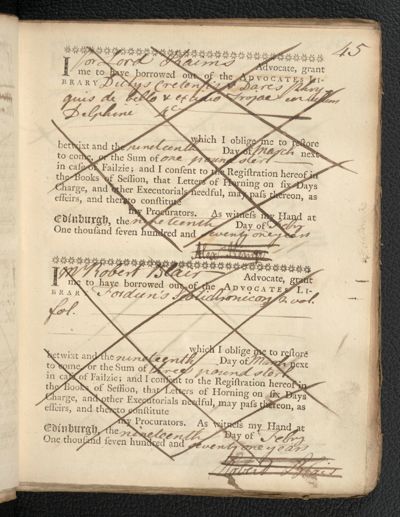 45
I for Lord Kaims Advocate, grant
me to have borrowed out of the ADVOCATES LI-
BRARY Dictys Cretensis & Dares Phry-
gius de bello & excidio Trojae in usum
Delphini
which I oblige me to restore
betwixt and the nineteenth Day of March next
to come, or the Sum of one pound sterl
in case of Failzie; and I consent to the Registration hereof in
the Books of Session, that Letters of Horning on six Days
Charge, and other Executorials needful, may pass thereon, as
effeirs, and thereto constitute
my Procurators. As witness my Hand at
Edinburgh, the nineteenth Day of Febry
One thousand seven hundred and seventy one years
I Mr Robert Blair Advocate, grant
me to have borrowed out of the ADVOCATES LI-
BRARY Forduns Scotichronicon 2 vol
fol.
which I oblige me to restore
betwixt and the nineteenth Day of March next
to come, or the Sum of three pound sterl
in case of Failzie; and I consent to the Registration hereof in
the Books of Session, that Letters of Horning on six Days
Charge, and other Executorials needful, may pass thereon, as
effeirs, and thereto constitute
my Procurators. As witness my Hand at
Edinburgh, the nineteenth Day of Febry
One thousand seven hundred and seventy one years
Robert Blair